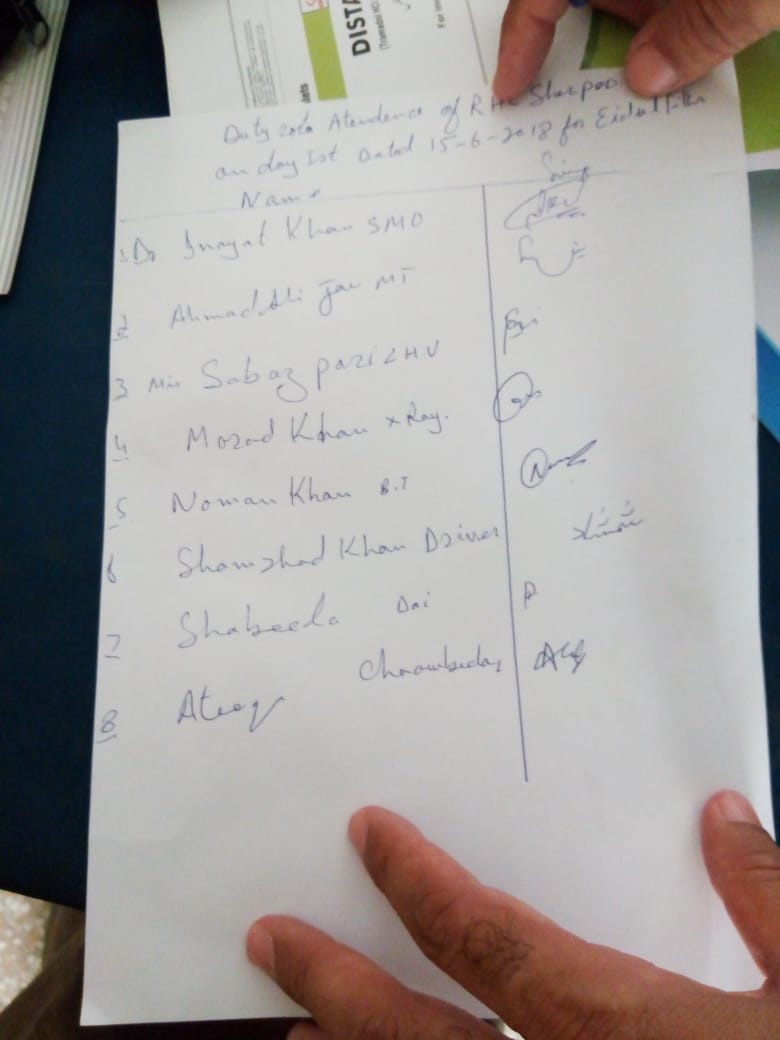 DISTA
Duty Rota Atendence of RHC Sherpao
on day Ist Dated 15-6-2018 for Eidulfiter
Name
1 Dr Inayat Khan SMO
2 Ahmad Ali Jan MT
3 Mis Sabaz pari LHV
4 Morad Khan x Ray.
5 Noman Khan B.T
6 Shamshad Khan Driver
7 Shakeela Dai
8 Ateeq